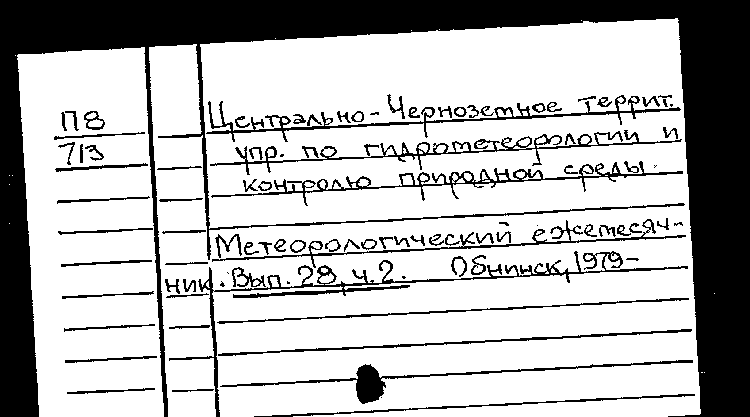 П8
713
Центрально-Чернозетное террит.
упр. по гидрометеорологии и
контролю природной среды.
Метеорологический ежемесяч-
ник. Вып. 28, ч.2. Обнинск, 1979-